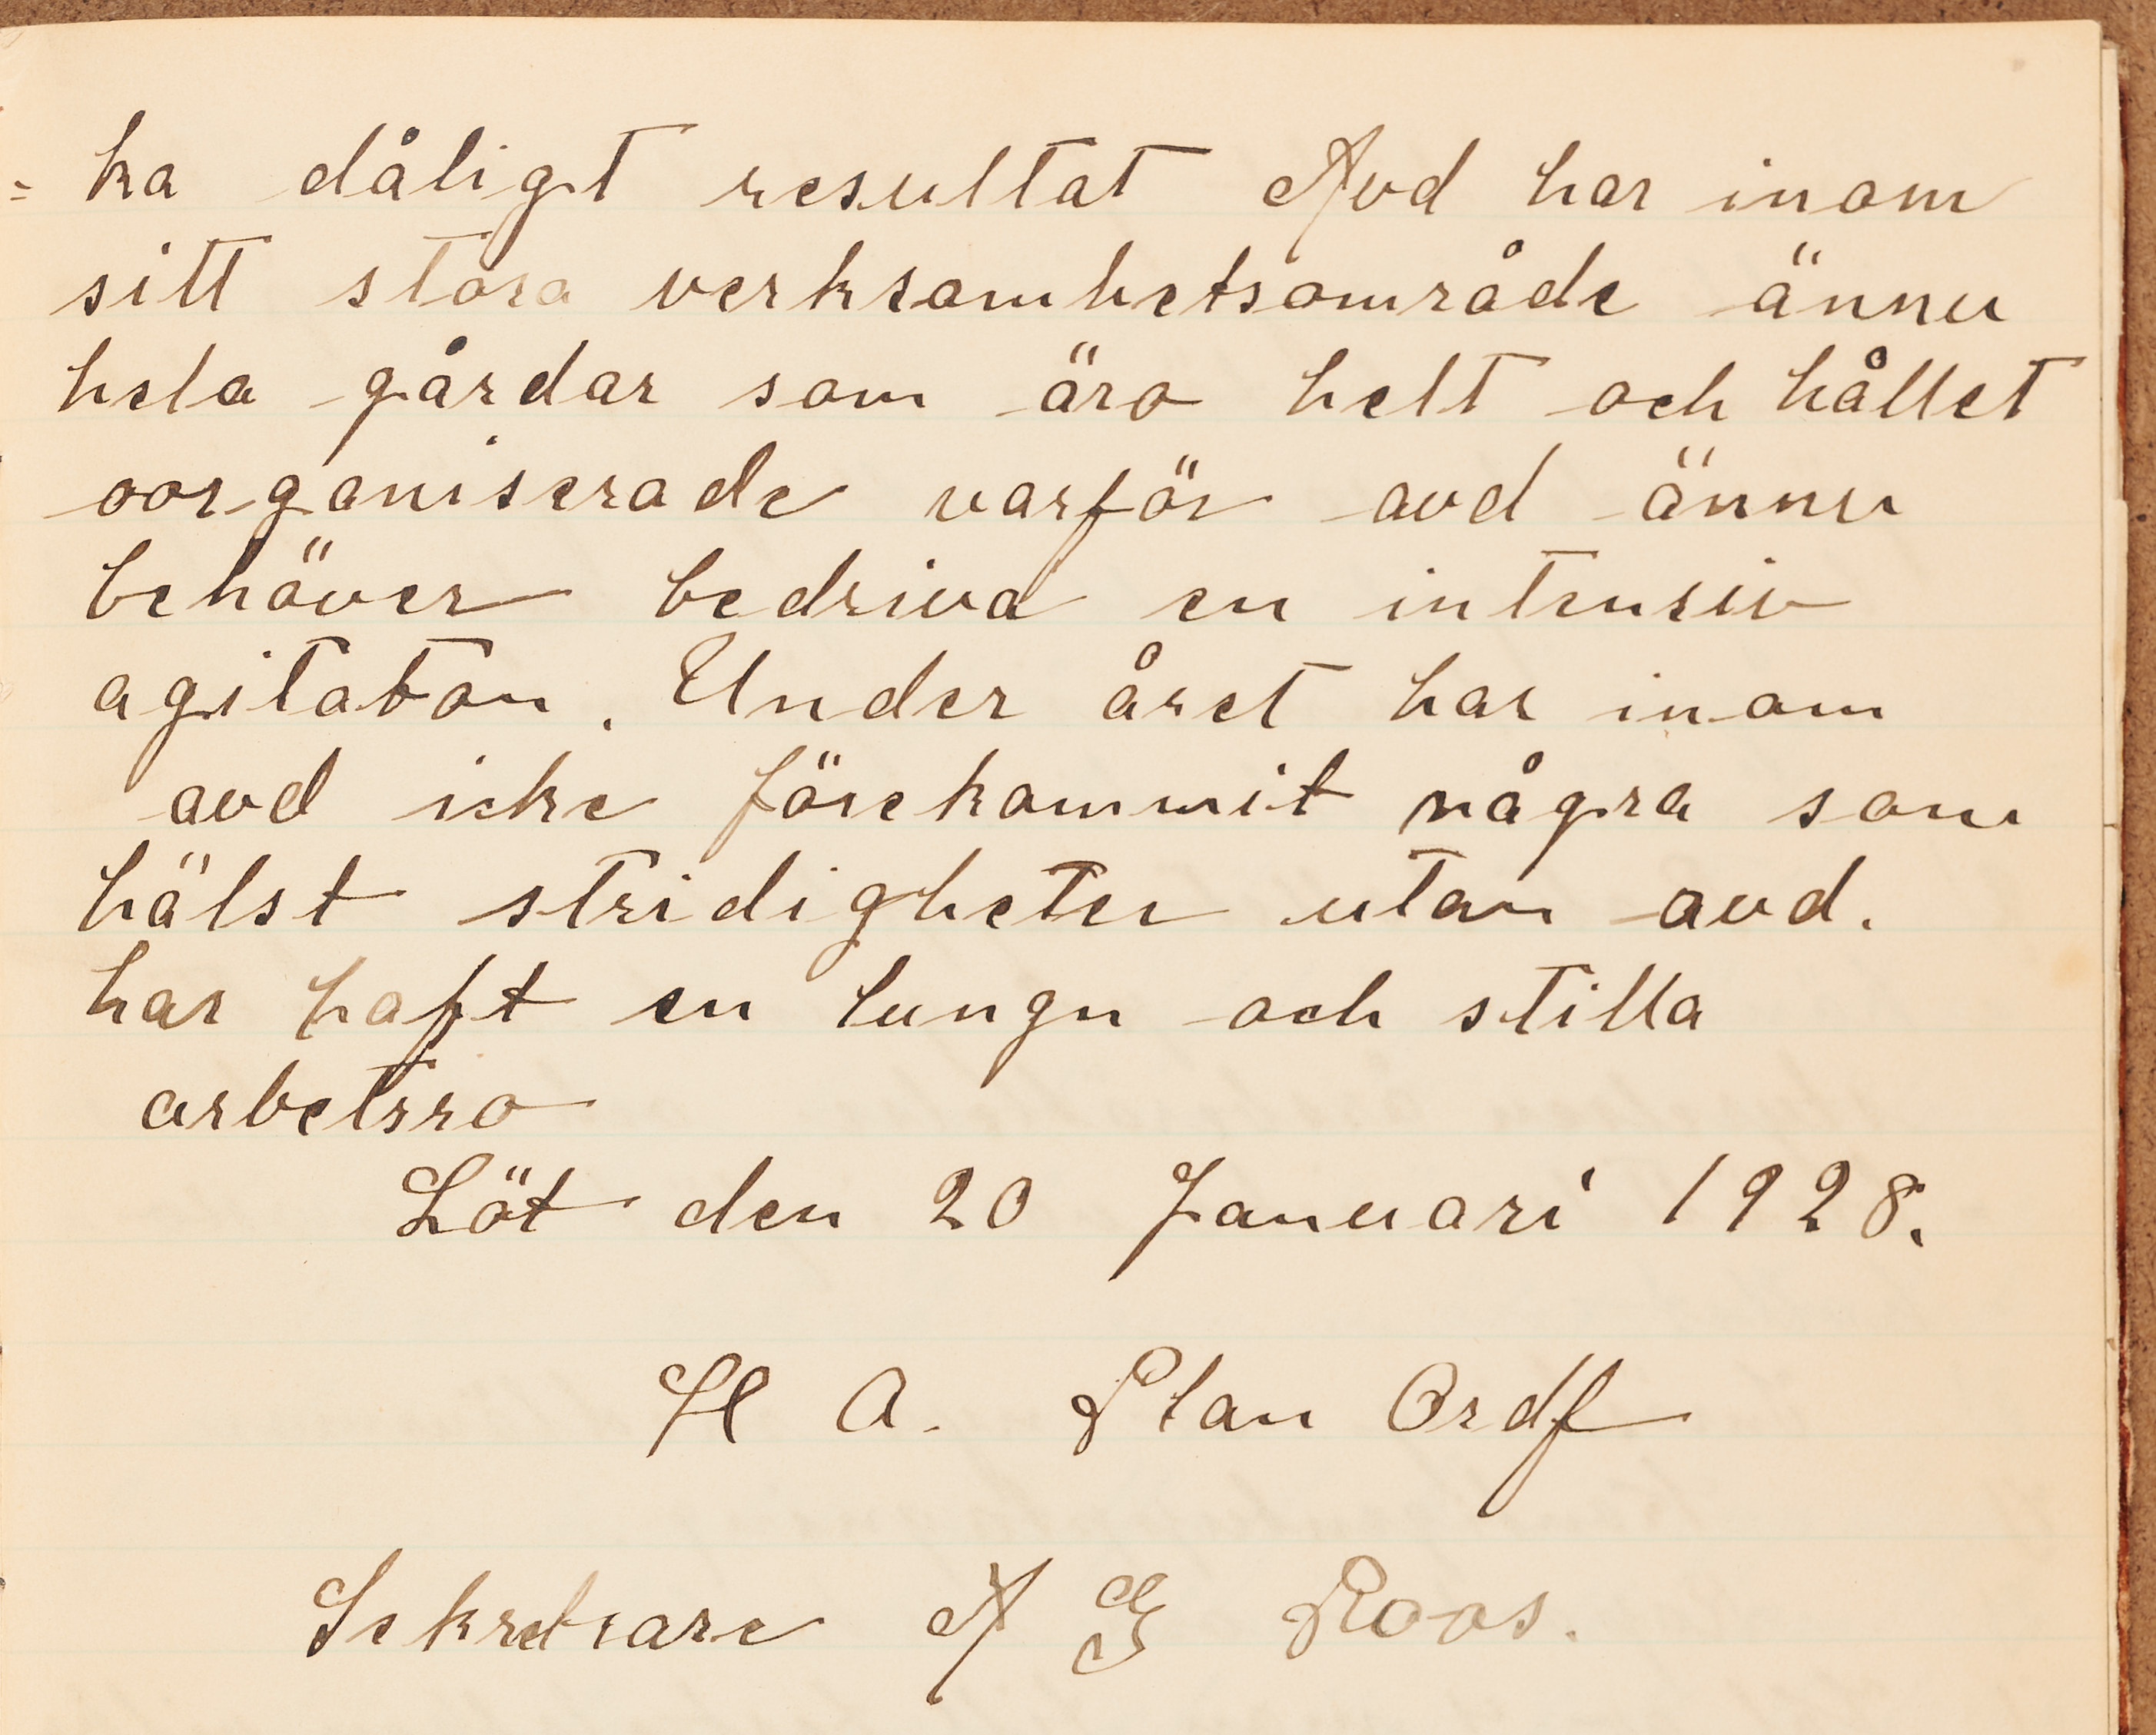 = ka dåligt resultat Avd har inom
sitt stora verksamhetsområde ännu
hela gårdar som äro helt och hållet
oorganiserade varför avd ännu
behöver bedriva en intensiv
agitaton. Under året har inom
avd icke förekommit några som
hälst stridigheter utan avd.
har haft en lungn och stilla
arbetsro
Löt den 20 Januari 1928.
H A. Plan Ordf
Sekretrare A G Roos.